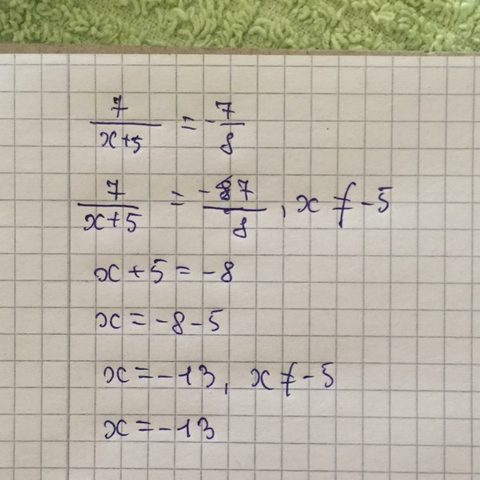 7/(x+5) = -7/8
7/(x+5) = -7/8, x ≠ -5
x + 5 = -8
x = -8 - 5
x = -13, x ≠ -5
x = -13